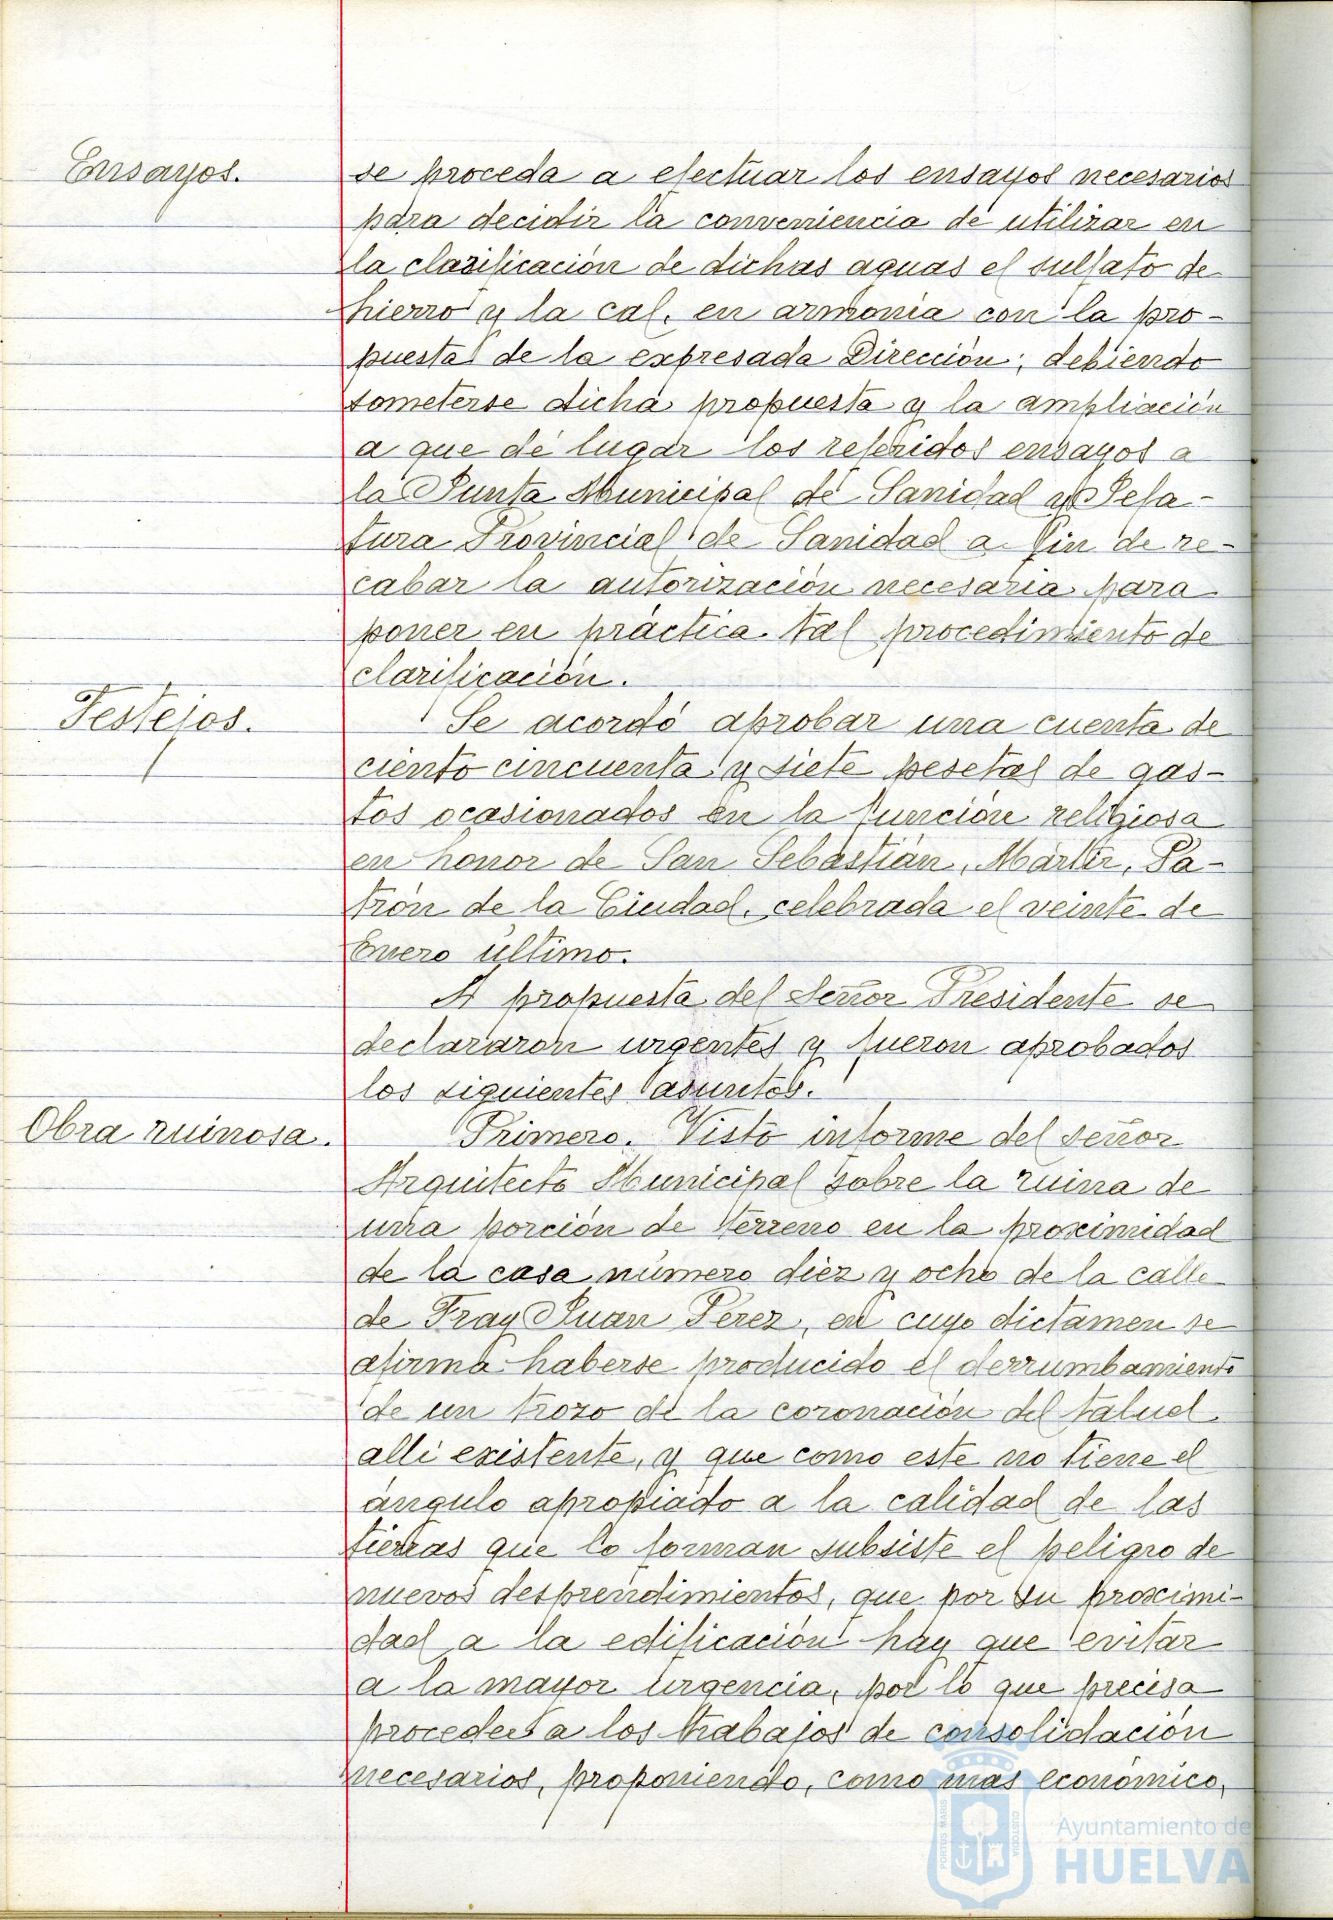 Ensayos.
se proceda a efectuar los ensayos necesarios
para decidir la conveniencia de utilizar en
la clarificación de dichas aguas el sulfato de
hierro y la cal, en armonía con la pro-
puesta de la expresada Dirección; debiendo
someterse dicha propuesta y la ampliación
a que dé lugar los referidos ensayos a
la Junta Municipal de Sanidad y Jefa-
tura Provincial de Sanidad a fin de re-
cabar la autorización necesaria para
poner en práctica tal procedimiento de
clarificación.
Festejos.
Se acordó aprobar una cuenta de
ciento cincuenta y siete pesetas de gas-
tos ocasionados en la función religiosa
en honor de San Sebastián, Mártir, Pa-
trón de la Ciudad, celebrada el veinte de
Enero último.
A propuesta del Señor Presidente se
declararon urgentes y fueron aprobados
los siguientes asuntos.
Obra ruinosa.
Primero. Visto informe del señor
Arquitecto Municipal sobre la ruina de
una porción de terreno en la proximidad
de la casa número diez y ocho de la calle
de Fray Juan Pérez, en cuyo dictamen se
afirma haberse producido el derrumbamiento
de un trozo de la coronación del talud
allí existente, y que como este no tiene el
ángulo apropiado a la calidad de las
tierras que lo forman subsiste el peligro de
nuevos desprendimientos, que por su proximi-
dad a la edificación hay que evitar
a la mayor urgencia, por lo que precisa
proceder a los trabajos de consolidación
necesarios, proponiendo, como mas económico,
PORTUS MARIS
CUSTODIA
Ayuntamiento de
HUELVA